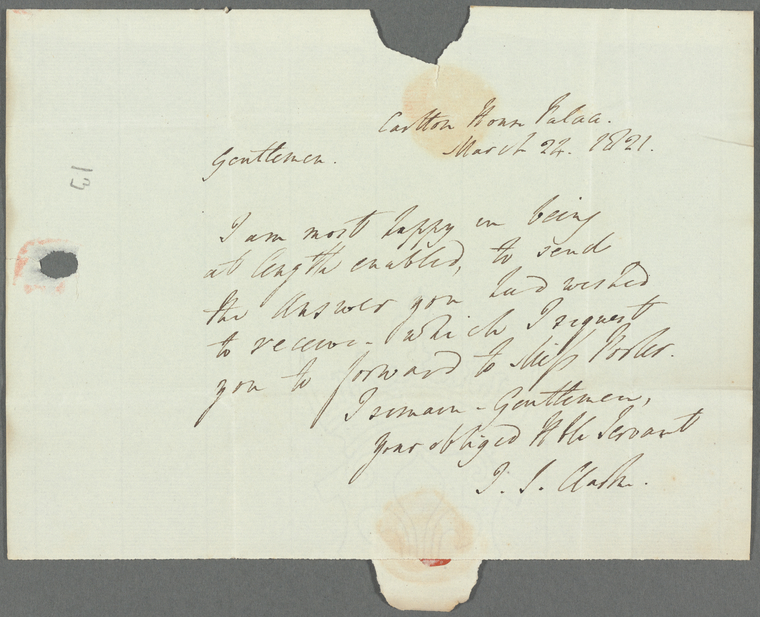 Carlton House Palace.
March 24. 1821.
Gentlemen.
13
I am most happy in being
at length enabled, to send
the Answer you had wished
to receive - which I request
you to forward to Miss Porter.
I remain - Gentlemen,
your obliged Hble Servant
J. S. Clarke.